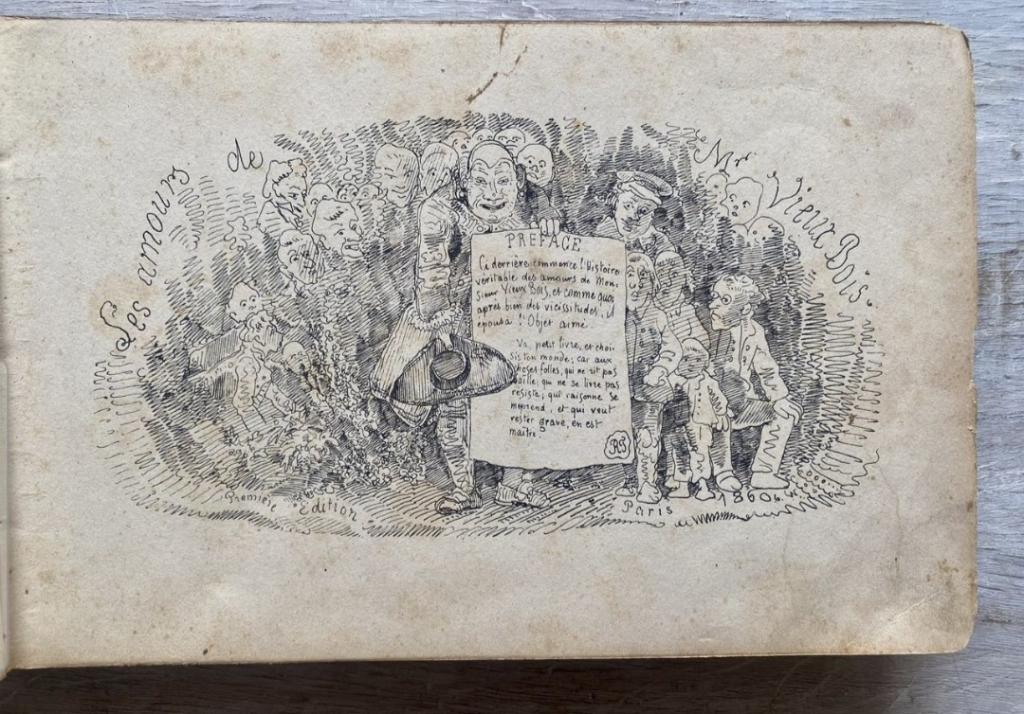 Les amours de Mr Vieux Bois.
PREFACE
Ci derrière commence l'Histoire
veritable des amours de Mon-
sieur Vieux Bois, et comme quoi
après bien des vicissitudes, il
épousa l'Objet aimé
Va, petit livre, et choi-
sis ton monde; car aux
choses folles, qui ne rit pas
baille; qui ne se livre pas
résiste; qui raisonne se
meprend, et qui veut
rester grave, en est
maitre
Première Edition
Paris
1860